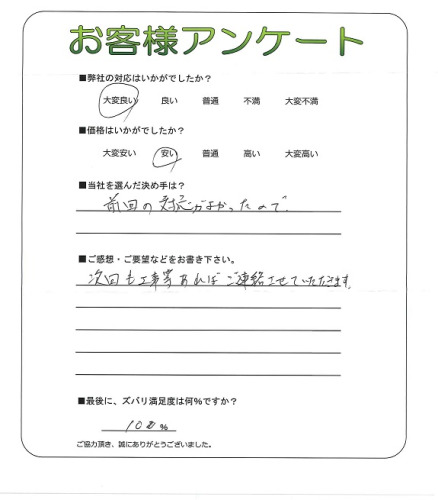 お客様アンケート
■弊社の対応はいかがでしたか?
大変良い 良い 普通 不満 大変不満
■価格はいかがでしたか?
大変安い 安い 普通 高い 大変高い
■当社を選んだ決め手は?
前回の対応がよかったので
■ご感想・ご要望などをお書き下さい。
次回も工事等あればご連絡させていただきます。
■最後に、ズバリ満足度は何%ですか?
100%
ご協力頂き、誠にありがとうございました。